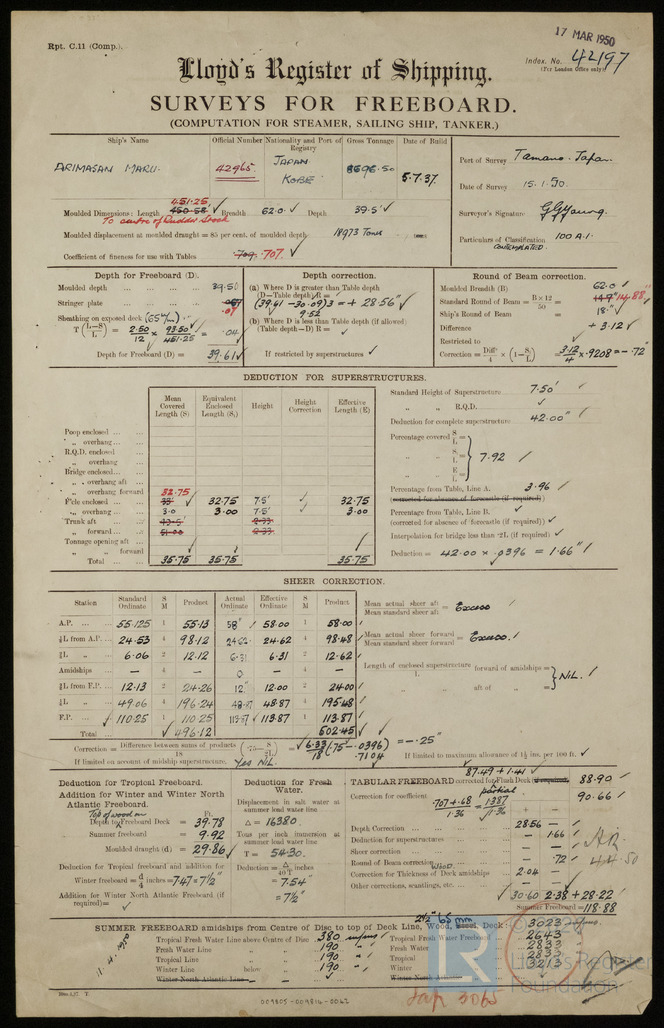 17 MAR 1950
Rpt. C.11 (Comp.).
Index. No. 42197
(For London Office only)
Lloyd's Register of Shipping.
SURVEYS FOR FREEBOARD.
(COMPUTATION FOR STEAMER, SAILING SHIP, TANKER.)
Ship's Name Official Number Nationality and Port of Registry Gross Tonnage Date of Build
ARIMASAN MARU. 42965 JAPAN KOBE 8696.50 5.7.37.
Port of Survey Tamano. Japan.
Date of Survey 15.1.50.
Surveyor's Signature
Particulars of Classification 100 A.1. CONTEMPLATED.
451.25
Moulded Dimensions: Length 450.58 Breadth 62.0 Depth 39.5
To centre of Rudder Stock
Moulded displacement at moulded draught = 85 per cent. of moulded depth 18973 Tons
Coefficient of fineness for use with Tables .709 .707
Depth for Freeboard (D).
Moulded depth 39.50
Stringer plate .07
Sheathing on exposed deck (65 m/m)
T(L−S/L) = 2.50/12 × 93.50/451.25 = .04
Depth for Freeboard (D) = 39.61
Depth correction.
(a) Where D is greater than Table depth
(D−Table depth) R =
(39.61 − 30.09) 3 = + 28.56"
9.52
(b) Where D is less than Table depth (if allowed)
(Table depth−D) R =
If restricted by superstructures
Round of Beam correction.
Moulded Breadth (B) 62.0
Standard Round of Beam = B×12/50 = 14.88"
Ship's Round of Beam = 18."
Difference + 3.12
Restricted to
Correction = Diffce/4 × (1−S/L) = 3.12/4 × .9208 = −.72"
DEDUCTION FOR SUPERSTRUCTURES.
Mean Covered Length (S) Equivalent Enclosed Length (S₁) Height Height Correction Effective Length (E)
Poop enclosed
„ overhang
R.Q.D. enclosed
„ overhang
Bridge enclosed
„ overhang aft
„ overhang forward
32.75
F'cle enclosed 33' 32.75 7.5' 32.75
„ overhang 3.0 3.00 7.5' 3.00
Trunk aft
„ forward
Tonnage opening aft
„ „ forward
Total 35.75 35.75 35.75
Standard Height of Superstructure 7.50'
„ „ R.Q.D.
Deduction for complete superstructure 42.00"
Percentage covered S/L =
„ „ S₁/L = 7.92
„ „ E/L =
Percentage from Table, Line A. 3.96
(corrected for absence of forecastle (if required))
Percentage from Table, Line B.
(corrected for absence of forecastle (if required))
Interpolation for bridge less than ·2L (if required)
Deduction = 42.00 × .0396 = 1.66"
SHEER CORRECTION.
Station Standard Ordinate S M Product Actual Ordinate Effective Ordinate S M Product
A.P. 55.125 1 55.13 58" 58.00 1 58.00
⅙L from A.P. 24.53 4 98.12 24.62 24.62 4 98.48
⅓L „ 6.06 2 12.12 6.31 6.31 2 12.62
Amidships — 4 — 0 — 4 —
⅓L from F.P. 12.13 2 24.26 12." 12.00 2 24.00
⅙L „ 49.06 4 196.24 48.87 48.87 4 195.48
F.P. 110.25 1 110.25 113.87 113.87 1 113.87
Total 496.12 502.45
Mean actual sheer aft / Mean standard sheer aft = Excess
Mean actual sheer forward / Mean standard sheer forward = Excess.
Length of enclosed superstructure forward of amidships = NIL.
L aft of „ =
Correction = Difference between sums of products/18 (·75−S/2L) = 6.33/18 (.75 − .0396) = −.25"
.7104
If limited on account of midship superstructure. Yes NIL.
If limited to maximum allowance of 1½ ins. per 100 ft.
Deduction for Tropical Freeboard.
Addition for Winter and Winter North Atlantic Freeboard.
Top of wood on
Depth to Freeboard Deck = 39.78
Summer freeboard = 9.92
Moulded draught (d) = 29.86
Deduction for Tropical freeboard and addition for
Winter freeboard = d/4 inches = 7.47 = 7½"
Addition for Winter North Atlantic Freeboard (if required) =
Deduction for Fresh Water.
Displacement in salt water at summer load water line
Δ = 16380
Tons per inch immersion at summer load water line
T = 54.30.
Deduction = Δ/40T inches
= 7.54"
= 7½"
87.49 + 1.41
TABULAR FREEBOARD corrected for Flush Deck (if required) 88.90
partial
Correction for coefficient .707 + .68/1.36 = 1.387/1.36 90.66
+ −
Depth Correction 28.56 —
Deduction for superstructures — 1.66
Sheer correction — —
Round of Beam correction — .72
Wood
Correction for Thickness of Deck amidships 2.04 —
Other corrections, scantlings, etc. — —
30.60 2.38 + 28.22
Summer Freeboard = 118.88
2½" 65 mm
SUMMER FREEBOARD amidships from Centre of Disc to top of Deck Line, Wood, Steel, Deck: 3023
Tropical Fresh Water Line above Centre of Disc 380 m/ms
Fresh Water Line „ „ 190 „
Tropical Line „ „ 190 „
Winter Line below „ 190 „
Winter North Atlantic Line „
Tropical Fresh Water Freeboard 2643
Fresh Water „ 2833
Tropical „ 2833
Winter „ 3213
Winter North Atlantic „
11.4.1950
LR
Lloyd's Register
Foundation
Jap 3065
009805-009816-0062